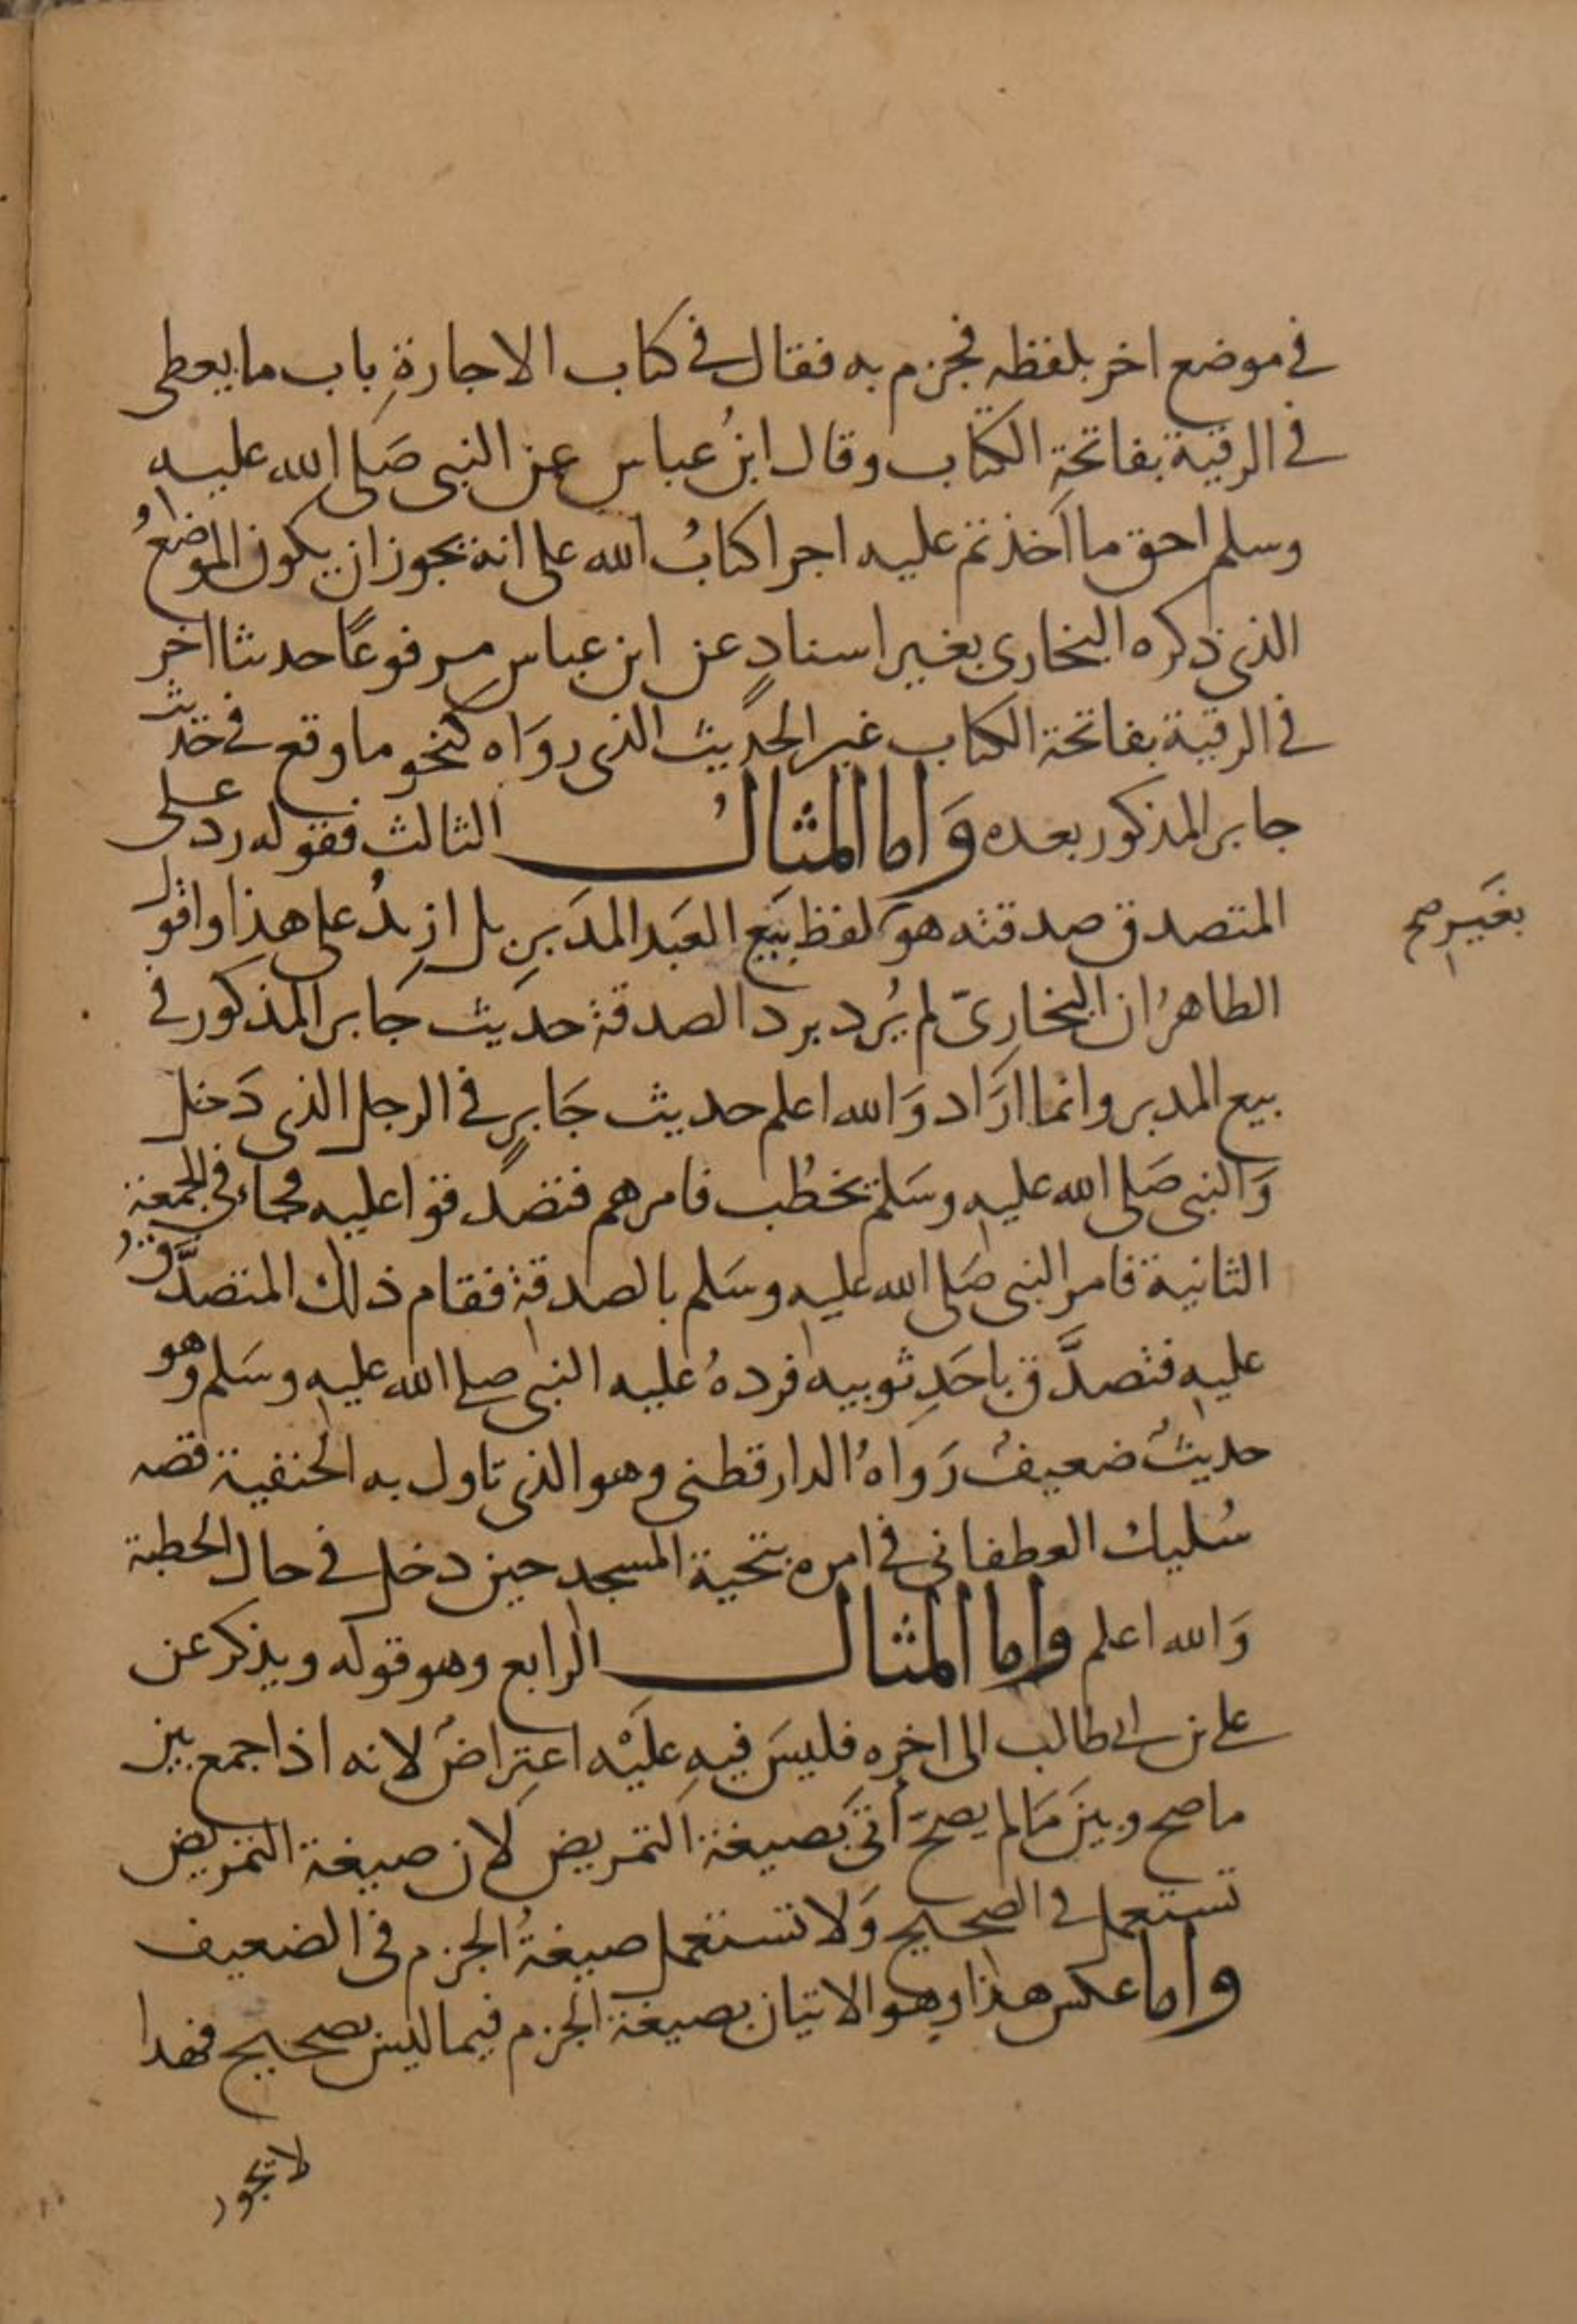 في موضع اخر بلفظه فجزم به فقال في كتاب الاجارةِ باب ما يعطى
في الرقية بفاتحةِ الكتاب وقال ابنُ عباس عن النبي صَلى الله عليه
وسلم احق ما اَخذتم عليه اجرا كتابُ الله على انه يجوز ان يكون الموضعُ
الذي ذكره البخارى بغير اسنادٍ عن ابن عباسٍ مرفوعًا حديثا اخر
في الرقية بفاتحة الكتاب غير الحديث الذى روَاه كنحو ما وقع في حديث
جابر المذكور بعده وَاما المثالُ الثالث فقوله رد على
المتصدق صدقته هو كَلفظ بَيع العَبد المدَبرِ بل ازيدُ على هذا واقول
بغَير صح
الطاهرُ ان البخارِىّ لم يُرد برد الصدقة حديث جَابر المذكور في
بيع المدبر وانما ارَاد وَالله اعلم حديث جَابرٍ في الرجل الذى دَخل
وَالنبى صَلى الله عليه وسَلم يخطُب فامرهم فتصدقوا عليه فجاء في الجمعة
الثانية فامر النبى صَلى الله عليه وسَلم بالصدقةِ فقام ذلك المتصدَّق
عليهِ فتصدَّق باحَدِ ثوبيه فردهُ عليه النبى صلى الله عليه وسَلم وهو
حديثٌ ضعيفٌ رَواهُ الدارقطنى وهو الذى تاول به الحنفية قصه
سُليك العطفانى في امره بتحية المسجد حين دخل في حال الخطبة
وَالله اعلم واما المثال الرابع وهو قوله ويذكر عن
على بن ابى طالب الى اخره فليسَ فيهِ عليْه اعتِراضٌ لانه اذا جمع بين
ما صح وبينَ مَا لم يصحّ أتى بَصيغة التمريض لان صيغة التمريض
تستعمل في الصحيح وَلا تستعمل صيغةُ الجزم في الضعيف
واما عكس هذا وهو الاتيان بصيغة الجزم فيما ليس بصحيح فهذا
لا يجوز